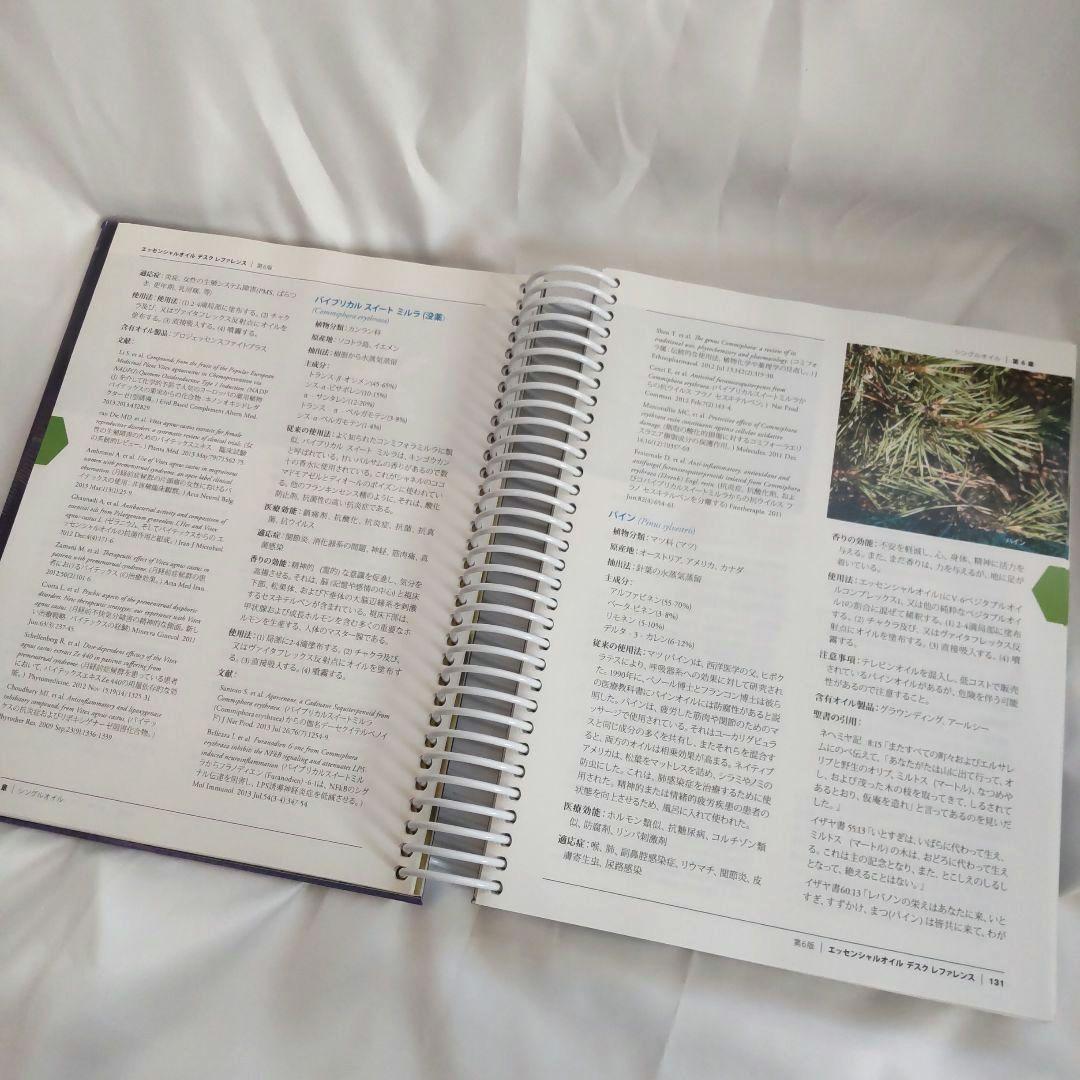 エッセンシャルオイル デスク レファレンス | 第6版
適応症：炎症、女性の生殖システム障害(PMS、ばらつ
き、更年期、乳房痛、等)
使用法：使用法：(1) 2-4滴局部に塗布する。(2) チャク
ラ及び、又はヴァイタフレックス反射点にオイルを
塗布する。(3) 直接吸入する。(4) 噴霧する。
含有オイル製品：プロジェッセンスファイトプラス
文献：
Li S, et al. Compounds from the fruits of the Popular European
Medicinal Plant Vitex agnus-castus in Chemoprevention via
NADP(H)-Quinone Oxidoreductase Type 1 Induction (NADP
2013;2013:432829
van Die MD, et al. Vitex agnus-castus extracts for female
reproductive disorders: a systematic review of clinical trials.
Ambrosini A, et al. Use of Vitex agnus-castus in migrainous
women with premenstrual syndrome: an open-label clinical
observation.
2013 Mar;113(1):25-9
Ghannadi A, et al. Antibacterial activity and composition of
essential oils from Pelargonium graveolens L'Her and Vitex
agnus-castus L.
2012 Dec;4(4):171-6
Zamani M, et al. Therapeutic effect of Vitex agnus castus in
patients with premenstrual syndrome.
2012;50(2):101-6
Ciotta L, et al. Psychic aspects of the premenstrual dysphoric
disorder. New therapeutic strategies: our experience with Vitex
agnus castus.
Jun;63(3):237-45
Schellenberg R, et al. Dose-dependent efficacy of the Vitex
agnus castus extract Ze 440 in patients suffering from
premenstrual syndrome.
Phytomedicine. 2012 Nov 15;19(14):1325-31
Choudhary MI, et al. Antiinflammatory and lipoxygenase
inhibitory compounds from Vitex agnus-castus.
Phytother Res. 2009 Sep;23(9):1336-1339
章 | シングルオイル
バイブリカル スイート ミルラ (没薬)
(Commiphora erythraea)
植物分類：カンラン科
原産地：ソコトラ島、イエメン
抽出法：樹脂から水蒸気蒸留
主成分：
トランス-β-オシメン(45-65%)
シス-α-ビサボレン(10-15%)
α - サンタレン(12-20%)
トランス α - ベルガモテン(3-8%)
シス α-ベルガモテン(1-4%)
従来の使用法：よく知られたコンミフォラミルラに類
似、バイブリカル スイート ミルラは、キンゴウカン
と呼ばれている。甘いバルサムの香りがあるので数
十の香水に使用されている。これがシャネルのココ
マドモアゼルとディオールのポイズンに使われてい
る。他のフランキンセンス種のように、それは、酸化
防止剤、抗菌性の高い抗炎症である。
医療効能：鎮痛剤、抗酸化、抗炎症、抗菌、抗真
菌、抗ウイルス
適応症：関節炎、消化器系の問題、神経、筋肉痛、真
菌感染
香りの効能：精神的 (霊的) な意識を促進し、気分を
高揚させる。それは、脳 (記憶や感情の中心) と視床
下部、松果体、および下垂体の大脳辺縁系を刺激
するセスキテルペンが含まれている。視床下部は、
甲状腺および成長ホルモンを含む多くの重要なホ
ルモンを生産する、人体のマスター腺である。
使用法：(1) 局部に2-4滴塗布する。(2) チャクラ及び、
又はヴァイタフレックス反射点にオイルを塗布す
る。(3) 直接吸入する。(4) 噴霧する。
文献：
Santoro S, et al. Agarsenone, a Cadinane Sesquiterpenoid from
Commiphora erythraea.
(Commiphora erythraea) からの無名デーセクイテルペノイ
ド) J Nat Prod. 2013 Jul 26;76(7):1254-9
Bellezza I, et al. Furanodien-6-one from Commiphora
erythraea inhibits the NFkB signaling and attenuates LPS-
induced neuroinflammation
Mol Immunol. 2013 Jul;54(3-4):347-54
シングルオイル | 第 6 章
Shen T, et al. The genus Commiphora: a review of its
traditional uses, phytochemistry and pharmacology.
Ethnopharmacol. 2012 Jul 13;142(2):319-30.
Cenci E, et al. Antiviral furanosesquiterpenes from
Commiphora erythraea.
Commun. 2012 Feb;7(2):143-4.
Marcotullio MC, et al. Protective effects of Commiphora
erythraea resin constituents against cellular oxidative
damage.
Fraternale D, et al. Anti-inflammatory, antioxidant and
antifungal furanosesquiterpenoids isolated from Commiphora
erythraea (Ehrenb) Engl. resin
Jun;82(4):654-61.
パイン (Pinus sylvestris)
植物分類：マツ科 (マツ)
原産地：オーストリア、アメリカ、カナダ
抽出法：針葉の水蒸気蒸留
主成分：
アルファピネン(55-70%)
ベータ-ピネン(3-8%)
リモネン (5-10%)
デルタ - 3 - カレン(6-12%)
従来の使用法：マツ(パイン)は、西洋医学の父、ヒポク
ラテスにより、呼吸器系への効果に対して研究され
た。1990年に、ペノール博士とフランコン博士は彼ら
の医療教科書にパインオイルには防腐性があると説
明した。パインは、疲労した筋肉や関節のためのマ
ッサージで使用されている。それはユーカリグビュラ
スと同じ成分の多くを共有し、またそれらを混合す
ると、両方のオイルは相乗効果が高まる。ネイティブ
アメリカは、松葉をマットレスを詰め、シラミやノミの
防虫にした。これは、肺感染症を治療するために使
用された。精神的または情緒的疲労疾患の患者の
状態を向上させるため、風呂に入れて使われた。
医療効能：ホルモン類似、抗糖尿病、コルチゾン類
似、防腐剤、リンパ刺激剤
適応症：喉、肺、副鼻腔感染症、リウマチ、関節炎、皮
膚寄生虫、尿路感染
パイン
香りの効能：不安を軽減し、心、身体、精神に活力を
与える。また、まだ香りは、力を与えるが、地に足が
着いている。
使用法：エッセンシャルオイル1にV-6ベジタブルオイ
ルコンプレックス1、又は他の純粋なベジタブルオイ
ル1の割合に混ぜて稀釈する。(1) 2-4滴局部に塗布
する。(2) チャクラ及び、又はヴァイタフレックス反
射点にオイルを塗布する。(3) 直接吸入する。(4) 噴
霧する。
注意事項：テレピンオイルを混入し、低コストで販売
されているパインオイルがあるが、危険を伴う可能
性があるので注意すること。
含有オイル製品：グラウンディング、アールシー
聖書の引用：
ネヘミヤ記 8:15「またすべての町々およびエルサレ
ムにのべ伝えて、「あなたがたは山に出て行って、オ
リブと野生のオリブ、ミルトス (マートル)、なつめや
し、および茂った木の枝を取ってきて、しるされて
あるとおり、仮庵を造れ」と言ってあるのを見いだ
した。」
イザヤ書 55:13「いとすぎは、いばらに代わって生え、
ミルトス (マートル) の木は、おどろに代わって生え
る。これは主の記念となり、また、とこしえのしるし
となって、絶えることはない。」
イザヤ書60:13「レバノンの栄えはあなたに来、いと
すぎ、すずかけ、まつ(パイン) は皆共に来て、わが
第6版 | エッセンシャルオイル デスク レファレンス | 131